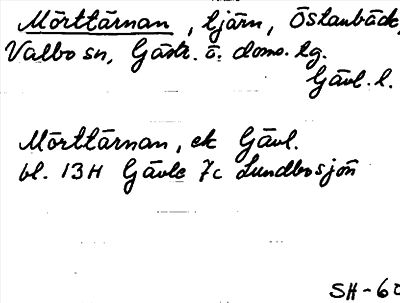 Mörttärnan, tjärn, Östanbäck,
Valbo sn, Gästr. ö. doms. tg.
Gävl. l.
Mörttärnan, ek Gävl.
bl. 13H Gävle 7c Lundbosjön
SH-60